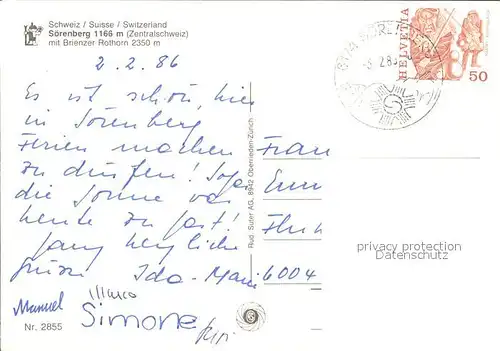 Schweiz / Suisse / Switzerland
Sörenberg 1166 m (Zentralschweiz)
mit Brienzer Rothorn 2350 m
HELVETIA
50
2.2.86
Es ist schön, hier
in Sörenberg
Ferien machen
zu dürfen! Sogar
die Sonne war
heute zu Gast!
Ganz herzliche
Grüsse Ida-Marie
Manuel Marco
Simone
Frau
6004
Rud. Suter AG, 8942 Oberrieden-Zürich
privacy protection
Datenschutz
Nr. 2855